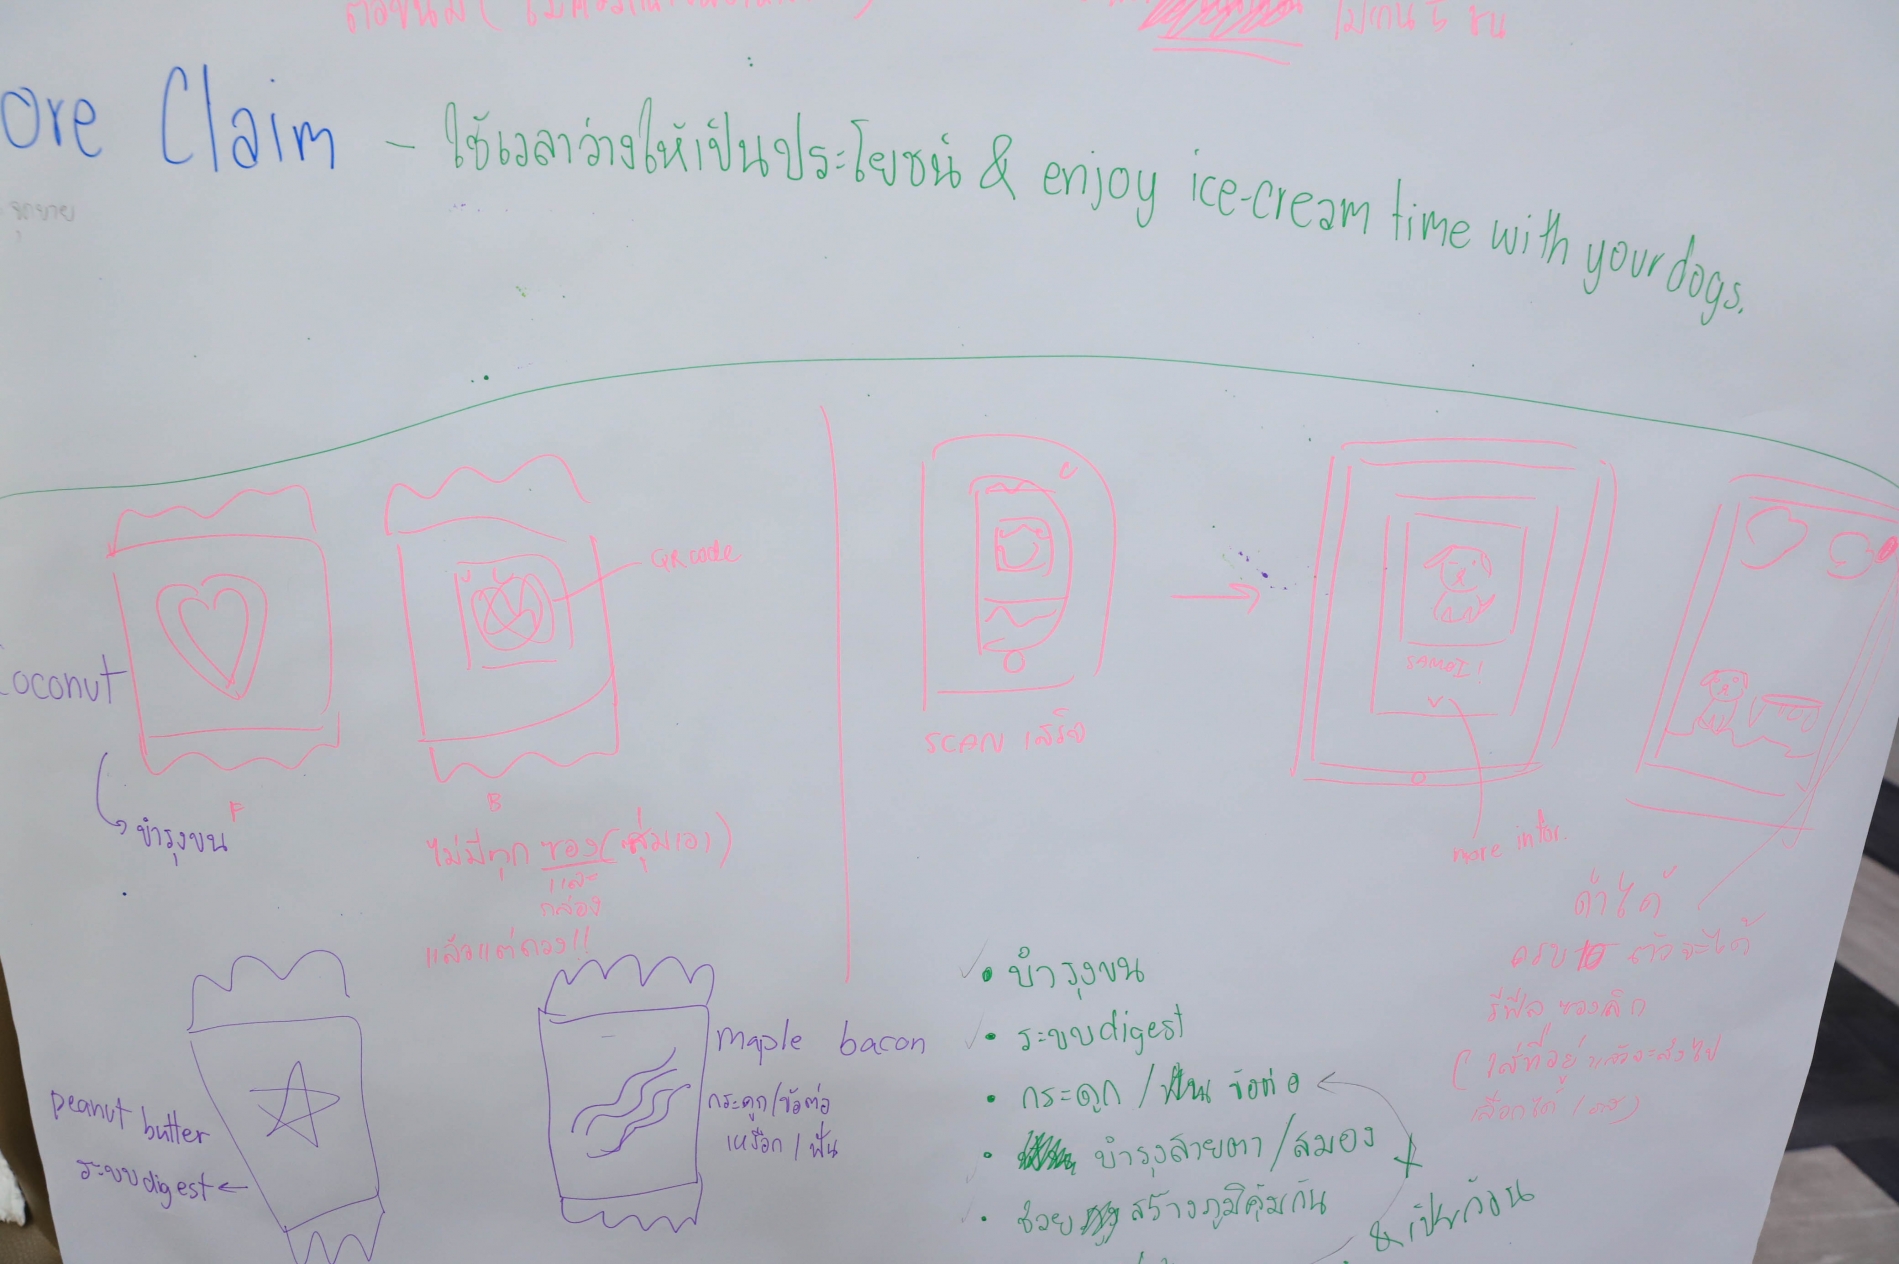 ไม่เกิน 5 ชิ้น
ore Claim - ใช้เวลาว่างให้เป็นประโยชน์ & enjoy ice-cream time with your dogs.
จุดขาย
QR code
Coconut
บำรุงขน
F
B
ไม่มีทุกซอง (สุ่มเอา)
และ
กล่อง
แล้วแต่ดวง!!
SCAN เสร็จ
SAMOI!
more infor.
ครบ 10 ตัวจะได้
(ใส่ที่อยู่แล้วจะส่งไป
peanut butter
ระบบdigest
maple bacon
กระดูก/ข้อต่อ
เหงือก/ฟัน
• บำรุงขน
• ระบบdigest
• กระดูก/ฟัน ข้อต่อ
• บำรุงสายตา/สมอง
• ช่วย สร้างภูมิคุ้มกัน
& เป็นก้อน